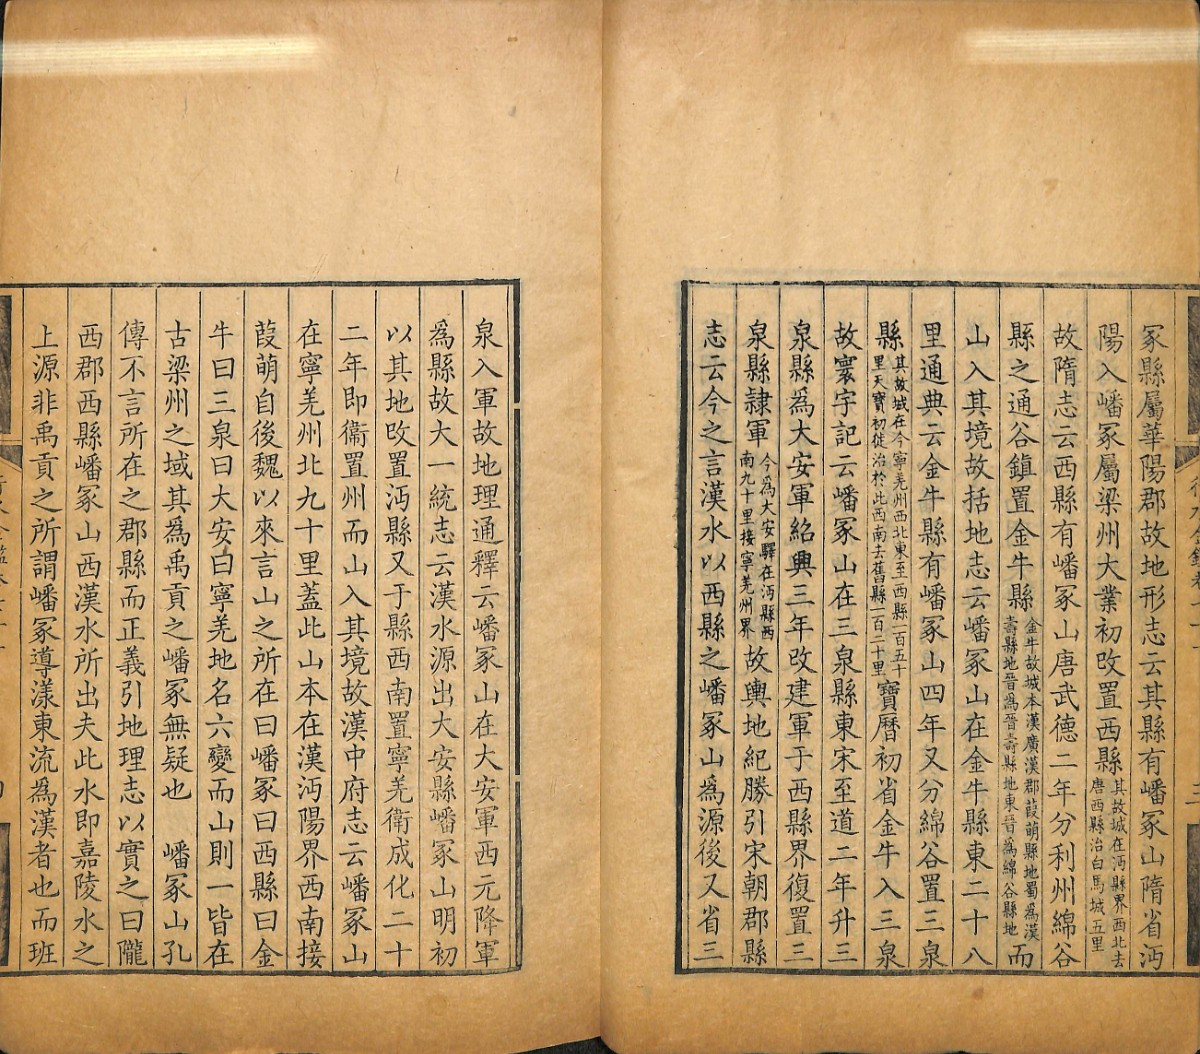 冢縣屬華陽郡故地形志云其縣有嶓冢山隋省沔
陽入嶓冢屬梁州大業初改置西縣其故城在沔縣界西北去唐西縣治白馬城五里
故隋志云西縣有嶓冢山唐武德二年分利州綿谷
縣之通谷鎮置金牛縣金牛故城本漢廣漢郡葭萌縣地蜀爲漢壽縣地晉爲晉壽縣地東晉爲綿谷縣地而
山入其境故括地志云嶓冢山在金牛縣東二十八
里通典云金牛縣有嶓冢山四年又分綿谷置三泉
縣其故城在今寧羌州西北東至西縣一百五十里天寶初徙治於此西南去舊縣一百二十里寶曆初省金牛入三泉
故寰宇記云嶓冢山在三泉縣東宋至道二年升三
泉縣爲大安軍紹興三年改建軍于西縣界復置三
泉縣隷軍今爲大安驛在沔縣西南九十里接寧羌州界故輿地紀勝引宋朝郡縣
志云今之言漢水以西縣之嶓冢山爲源後又省三
泉入軍故地理通釋云嶓冢山在大安軍西元降軍
爲縣故大一統志云漢水源出大安縣嶓冢山明初
以其地改置沔縣又于縣西南置寧羌衛成化二十
二年即衛置州而山入其境故漢中府志云嶓冢山
在寧羌州北九十里蓋此山本在漢沔陽界西南接
葭萌自後魏以來言山之所在曰嶓冢曰西縣曰金
牛曰三泉曰大安曰寧羌地名六變而山則一皆在
古梁州之域其爲禹貢之嶓冢無疑也　嶓冢山孔
傳不言所在之郡縣而正義引地理志以實之曰隴
西郡西縣嶓冢山西漢水所出夫此水即嘉陵水之
上源非禹貢之所謂嶓冢導漾東流爲漢者也而班